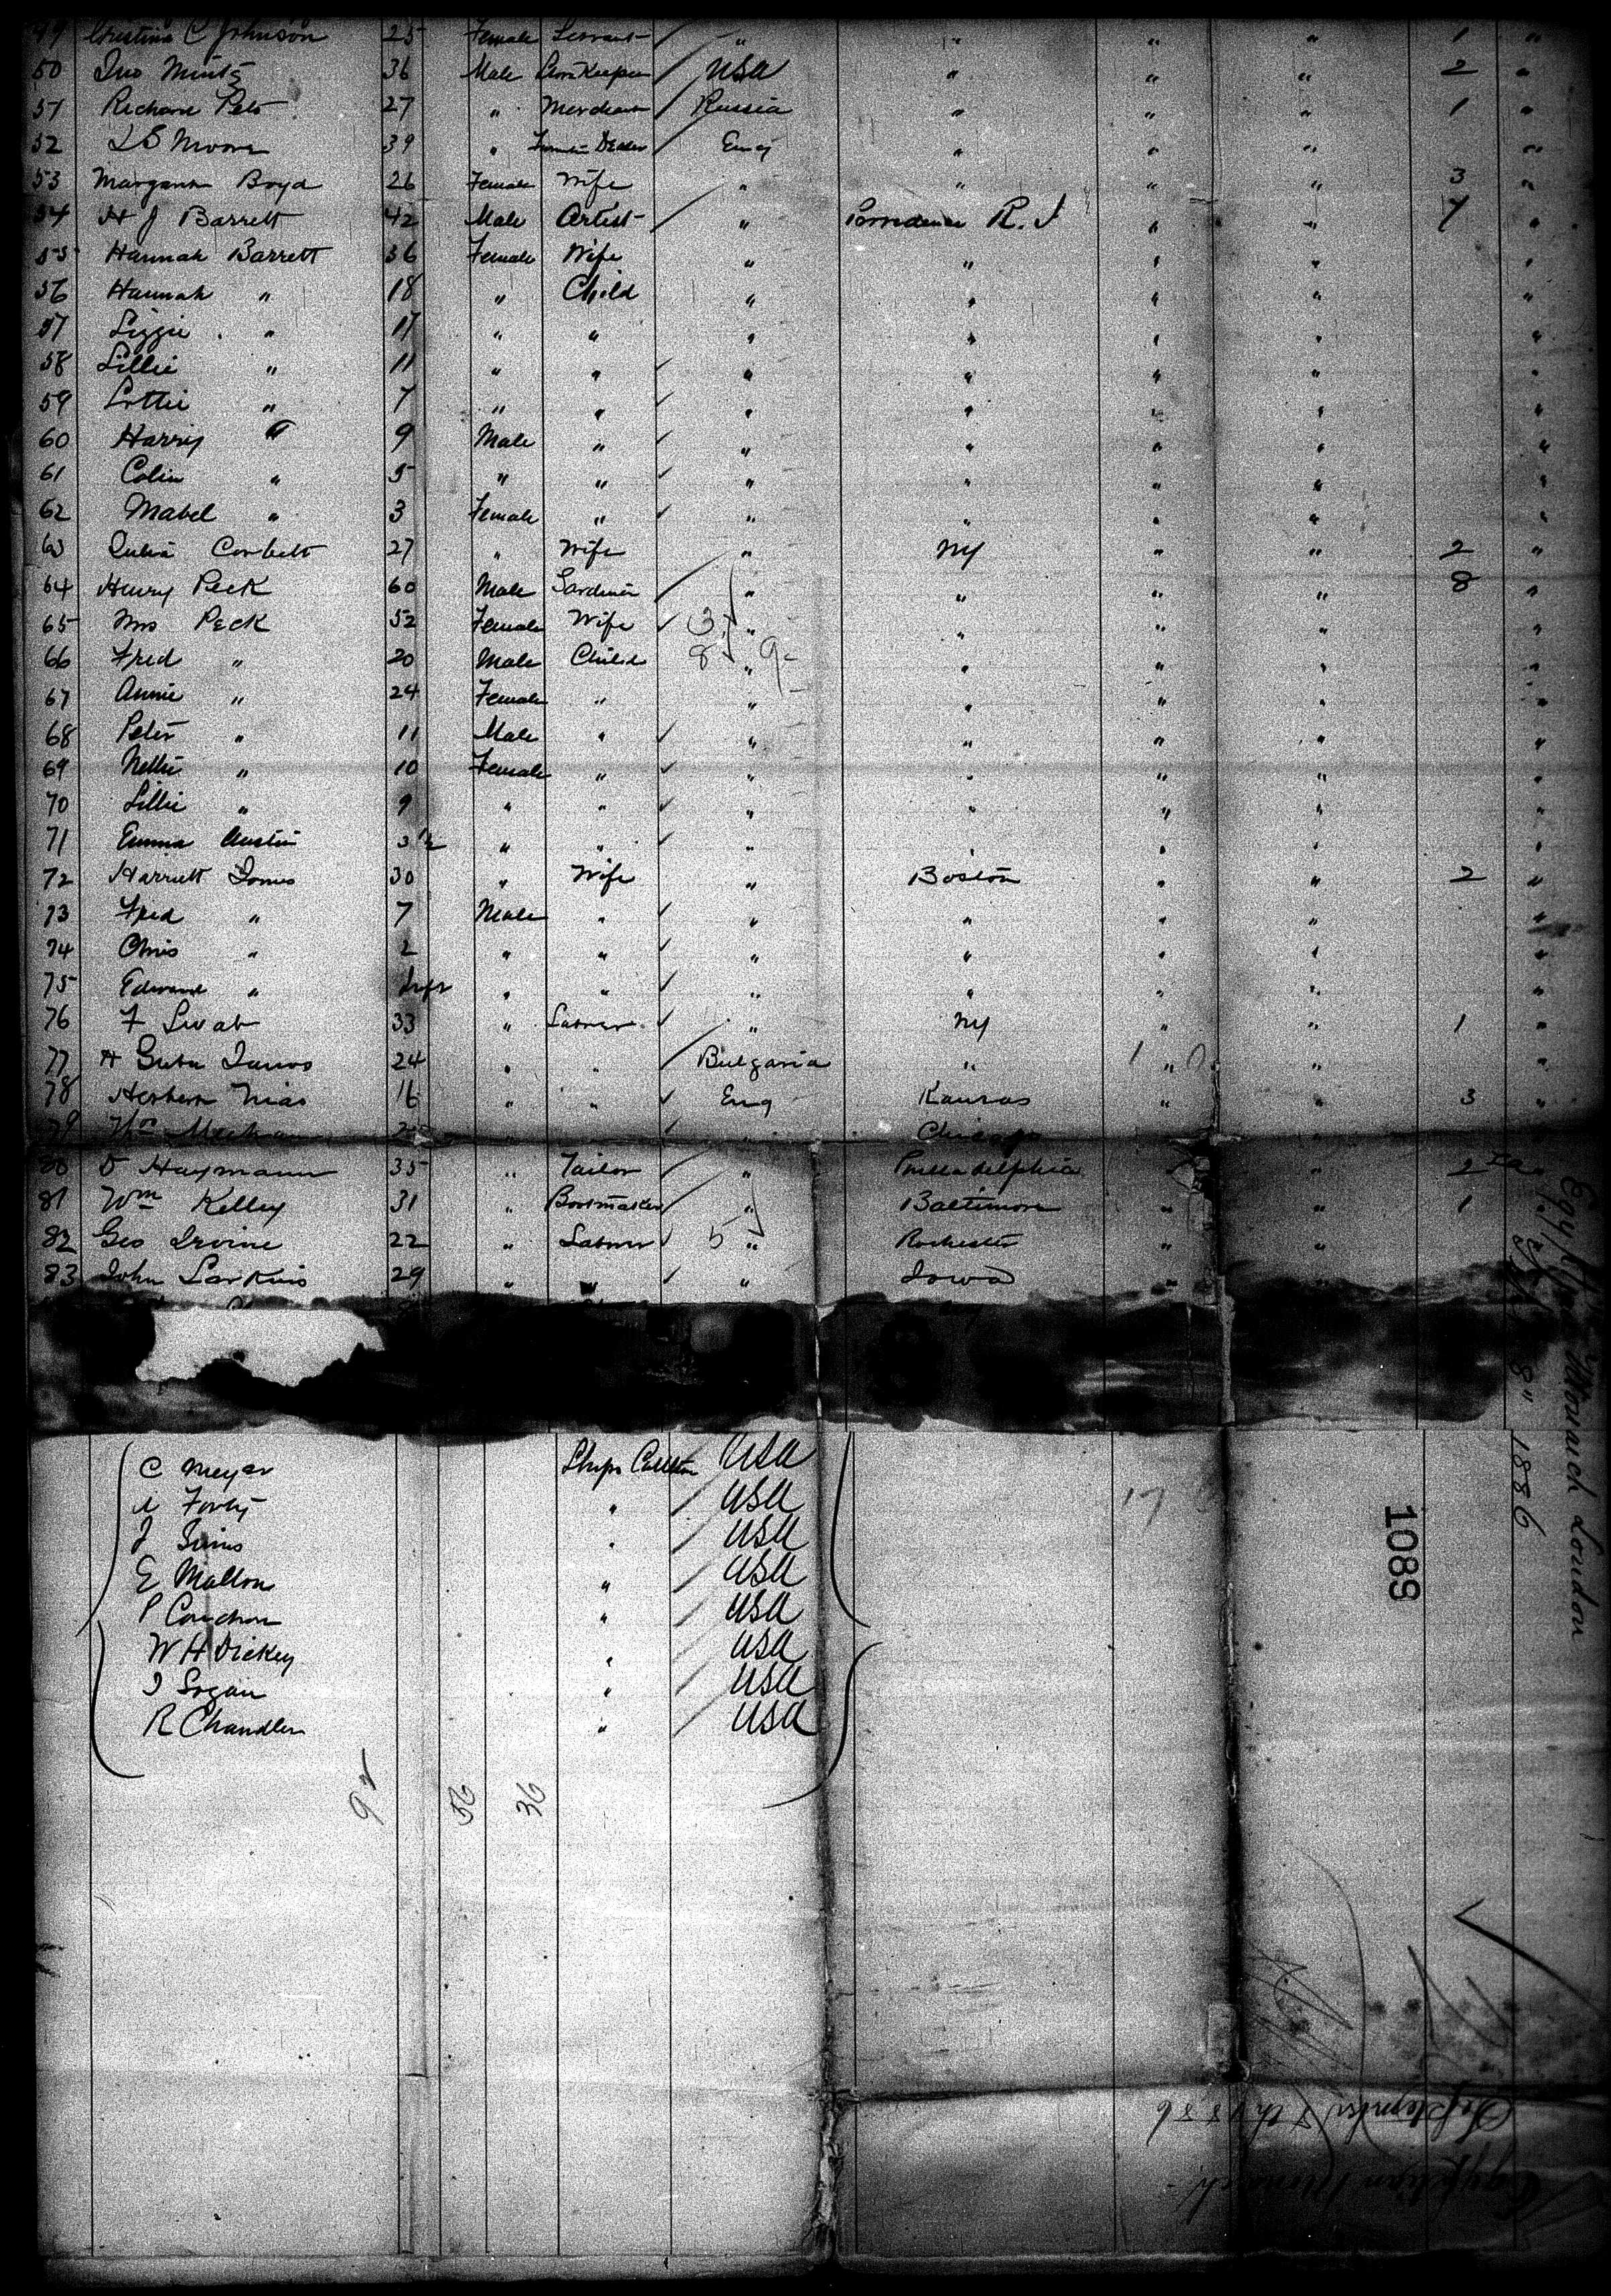 49 Christina C Johnson 25 Female Servant " " " " 1 "
50 Jno Mintz 36 Male USA " " " 2 "
51 Richard Pets 27 " Merchant Russia " " " 1 "
52 L S Moore 39 " Dealer Eng " " " "
53 Margaret Boyd 26 Female Wife " " " " 3 "
54 H J Barrett 42 Male Artist " Providence R.I " " 7 "
55 Hannah Barrett 36 Female Wife " " " " "
56 Hannah " 18 " Child " " " " "
57 Lizzie " 17 " " " " " " "
58 Lillie " 11 " " " " " " "
59 Lottie " 7 " " " " " " "
60 Harry " 9 Male " " " " " "
61 Colin " 5 " " " " " " "
62 Mabel " 3 Female " " " " " "
63 Julia Corbett 27 " Wife " NY " " 2 "
64 Henry Peck 60 Male Gardiner " " " " 8 "
65 Mrs Peck 52 Female Wife 3 " " " " "
66 Fred " 20 Male Child 8 " 9 " " " "
67 Annie " 24 Female " " " " " "
68 Peter " 11 Male " " " " " "
69 Nellie " 10 Female " " " " " "
70 Lillie " 9 " " " " " " "
71 Emma Austin 3 1/2 " " " " " " "
72 Harriett Jones 30 " Wife " Boston " " 2 "
73 Fred " 7 Male " " " " " "
74 Chris " 2 " " " " " " "
75 Edward " Inft " " " " " " "
76 F Swab 33 " Laborer " NY " " 1 "
77 H 24 " " Bulgaria " " " "
78 Herbert Nias 16 " " Eng Kansas " " 3 "
79 Wm Meehan " " Chicago "
80 D Haymann 35 " Tailor " Philladelphia " " 2
81 Wm Kelley 31 " Bootmaker " Baltimore " " 1
82 Geo Irvine 22 " Laborer 5 " Rochester " "
83 John Larkins 29 " " " Iowa " "
C Meyer Ships USA
Forty " USA
J " USA
E Mallon " USA
P " USA
W H Dickey " USA
J Logan " USA
R Chandler " USA
17
92 56 36
Egyptian Monarch London
Sept 8" 1886
1089
September 8th 1886
Egyptian Monarch